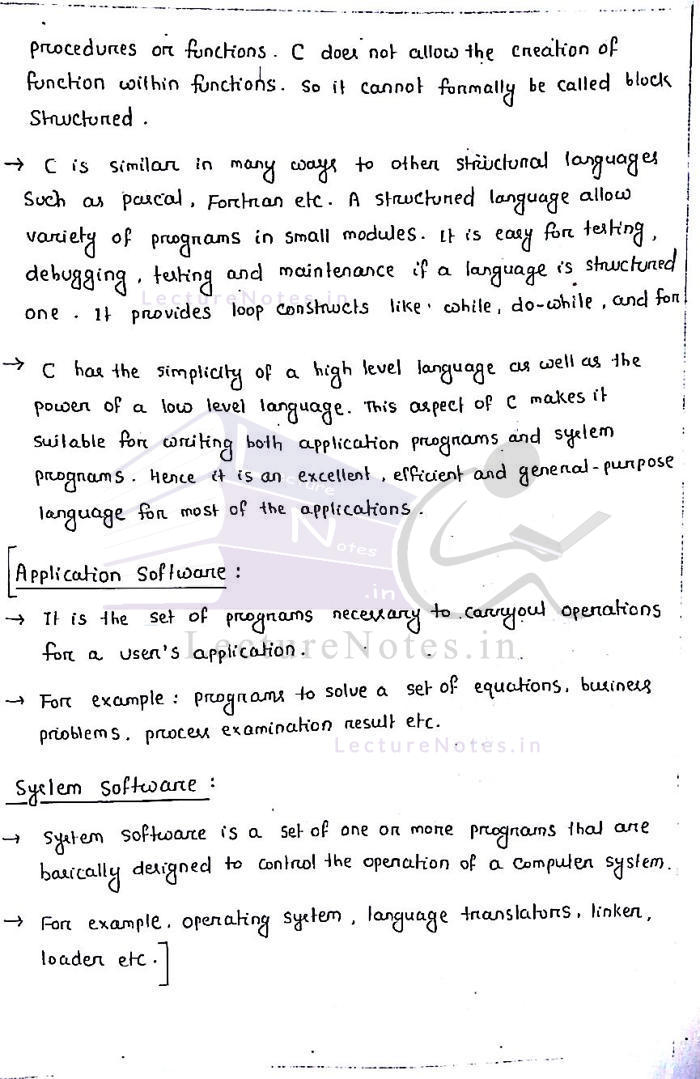 procedures or functions. C does not allow the creation of
function within functions. So it cannot formally be called block
Structured.
→ C is similar in many ways to other structural languages
Such as pascal, Fortran etc. A structured language allow
variety of programs in small modules. It is easy for testing,
debugging, testing and maintenance if a language is structured
LectureNotes.in
one. It provides loop constructs like. while, do-while, and for
→ C has the simplicity of a high level language as well as the
power of a low level language. This aspect of C makes it
suitable for writing both application programs and system
programs. Hence it is an excellent, efficient and general-purpose
Lecture
language for most of the applications.
Notes
.in
[Application Software:
→ It is the set of programs necessary to carryout operations
for a user's application.
LectureNotes.in
→ For example: programs to solve a set of equations, business
problems, process examination result etc.
LectureNotes.in
System Software:
→ System software is a set of one or more programs that are
basically designed to control the operation of a computer system.
→ For example, operating system, language translators, linker,
loader etc.]